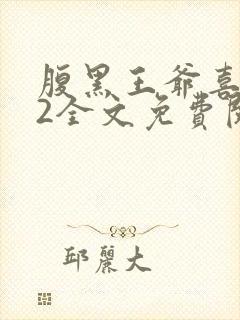 腹黑王爷喜
2全文免費阅
邱麗大